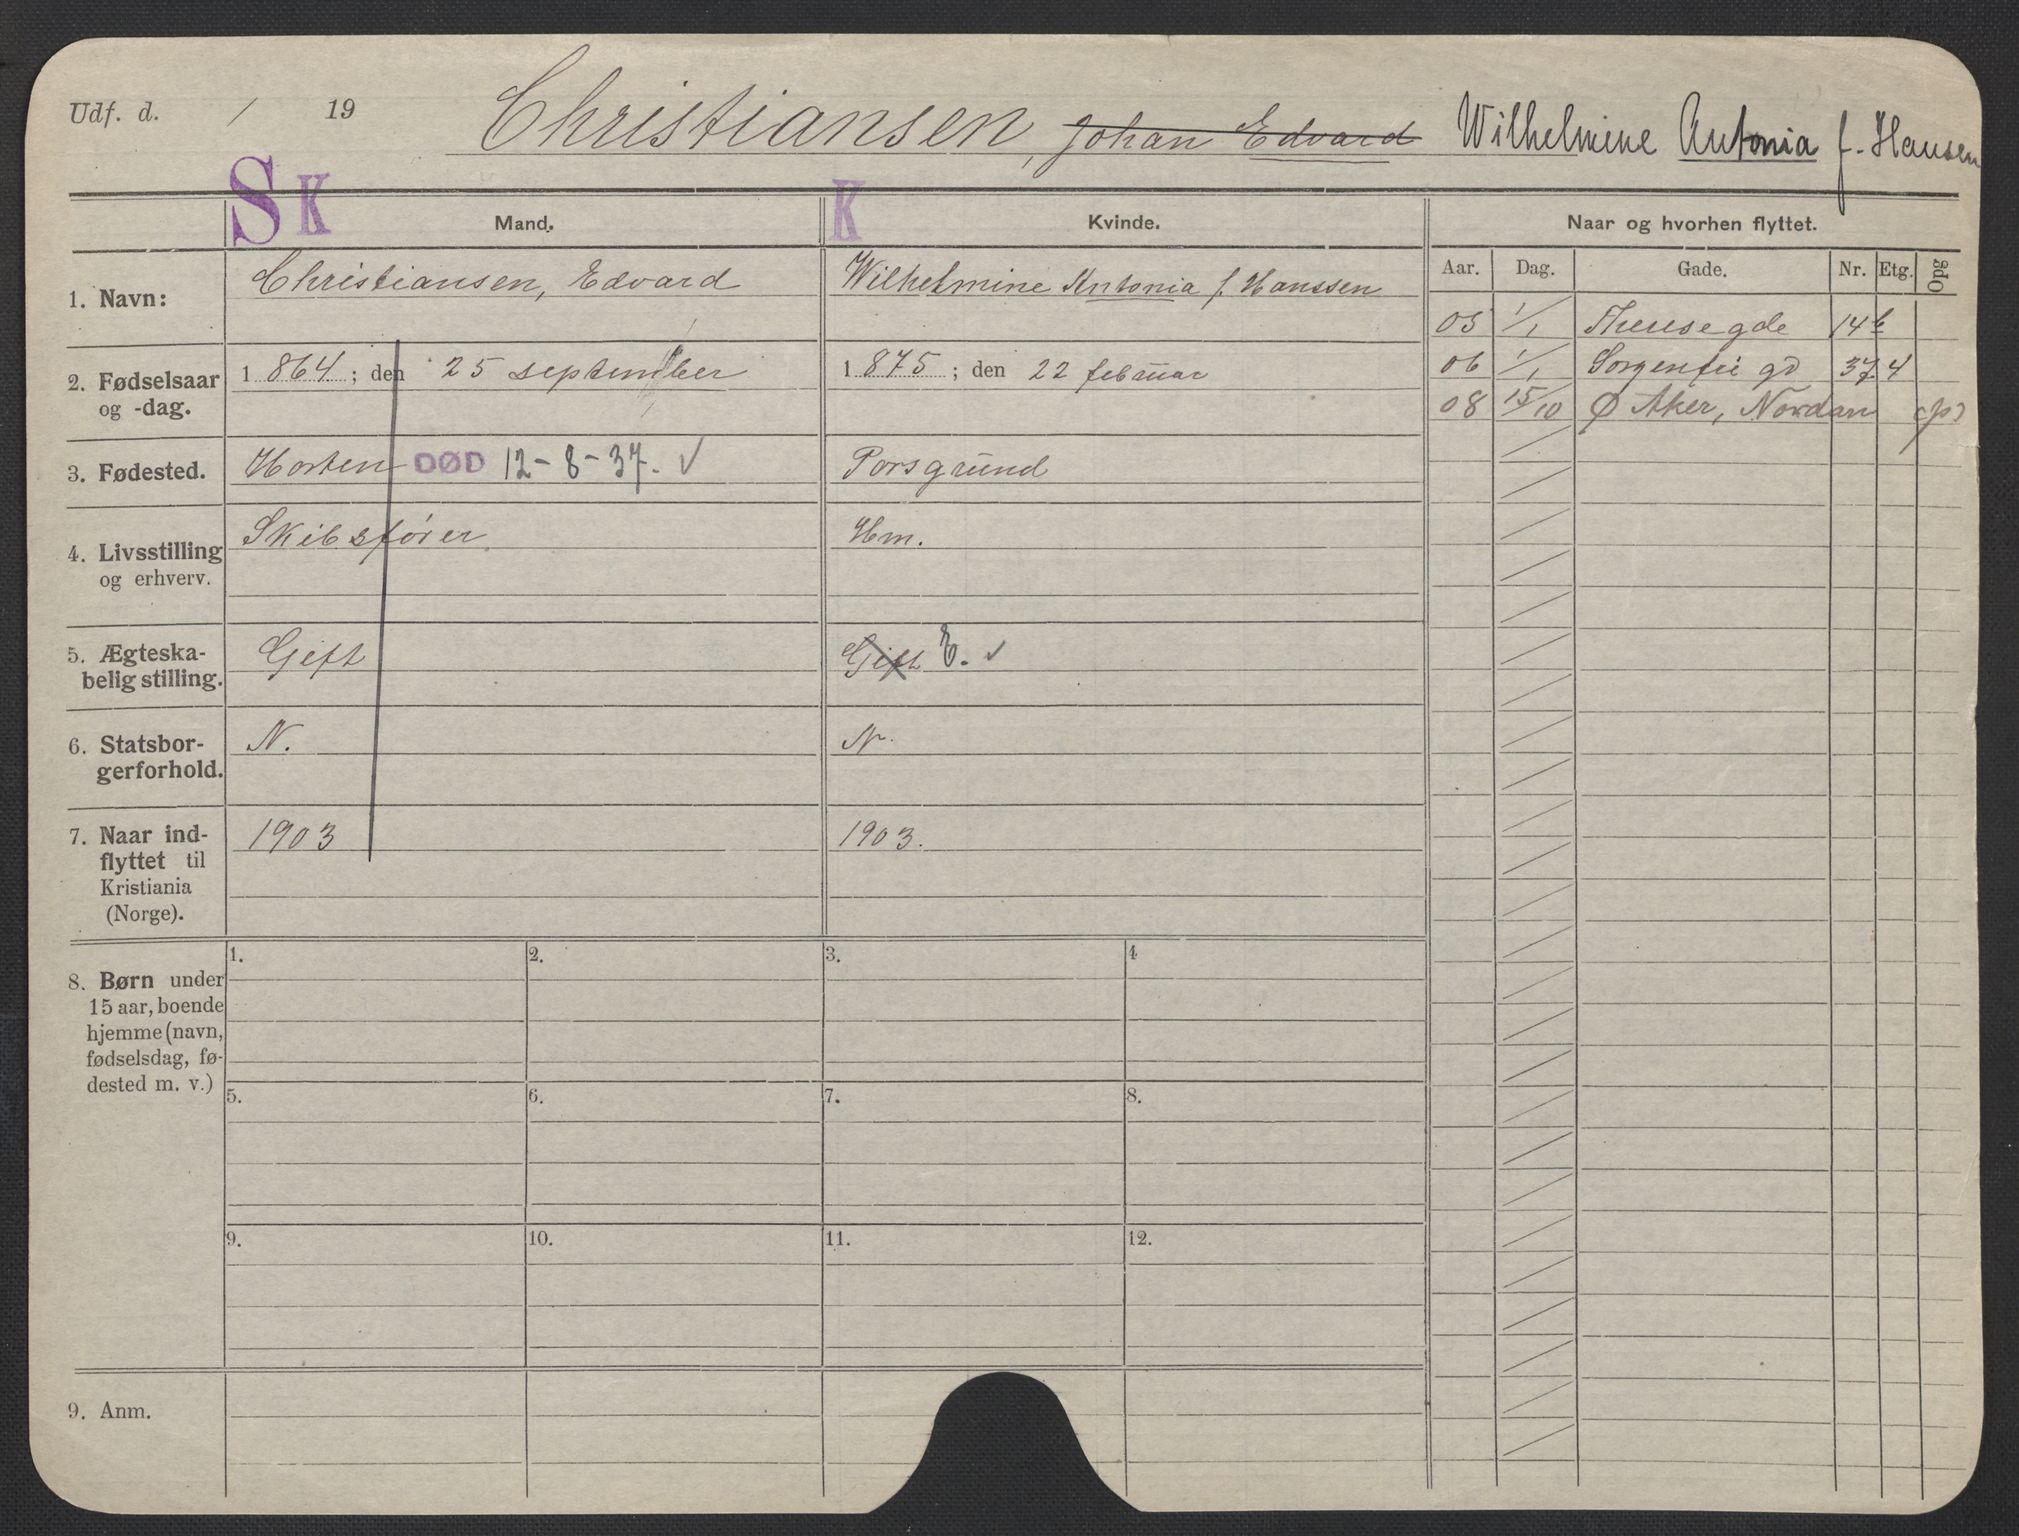 Udf. d. / 19 Christiansen, Johan Edvard Wilhelmine Antonia f. Hansen
S K Mand. K Kvinde. Naar og hvorhen flyttet.
Aar. Dag. Gade. Nr. Etg. Opg
1. Navn: Christiansen, Edvard Wilhelmine Antonia f. Hanssen
05 1/1 Theresegde 14b
2. Fødselsaar og -dag. 1864; den 25 september 1875; den 22 februar
06 1/1 Sorgenfri gd 37 4
08 15/10 Ø Aker, Nordan (p)
3. Fødested. Horten DØD 12-8-37. ✓ Porsgrund
4. Livsstilling og erhverv. Skibsfører Hm.
5. Ægteska-
belig stilling. Gift Gift E. ✓
6. Statsbor-
gerforhold. N. N.
7. Naar ind-
flyttet til
Kristiania
(Norge). 1903 1903.
8. Børn under
15 aar, boende
hjemme (navn,
fødselsdag, fø-
dested m. v.)
1. 2. 3. 4
5. 6. 7. 8.
9. 10. 11. 12.
9. Anm.